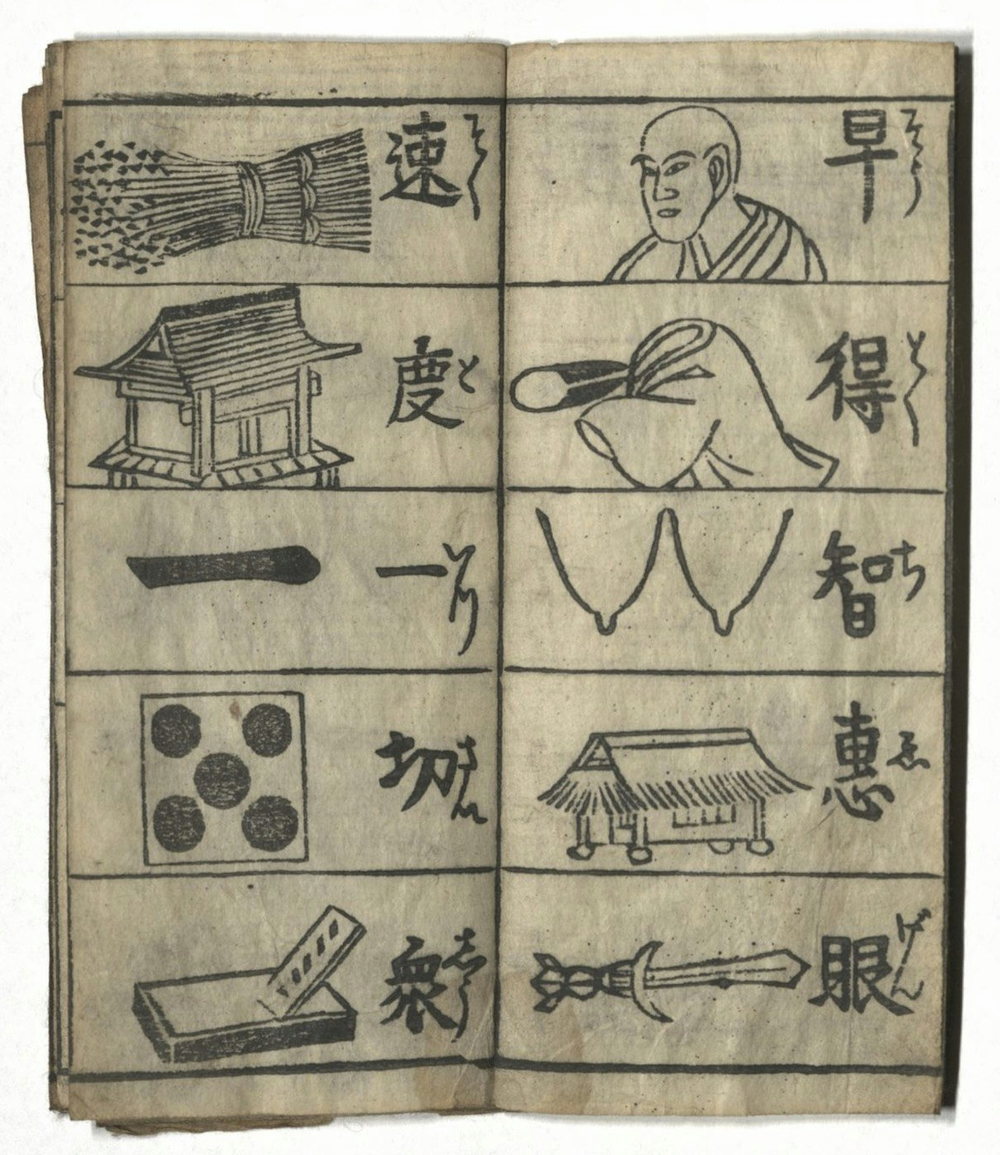 早 そう
得 とく
智 ち
惠 ゑ
眼 げん
速 そく
度 と
一
切 さい
衆